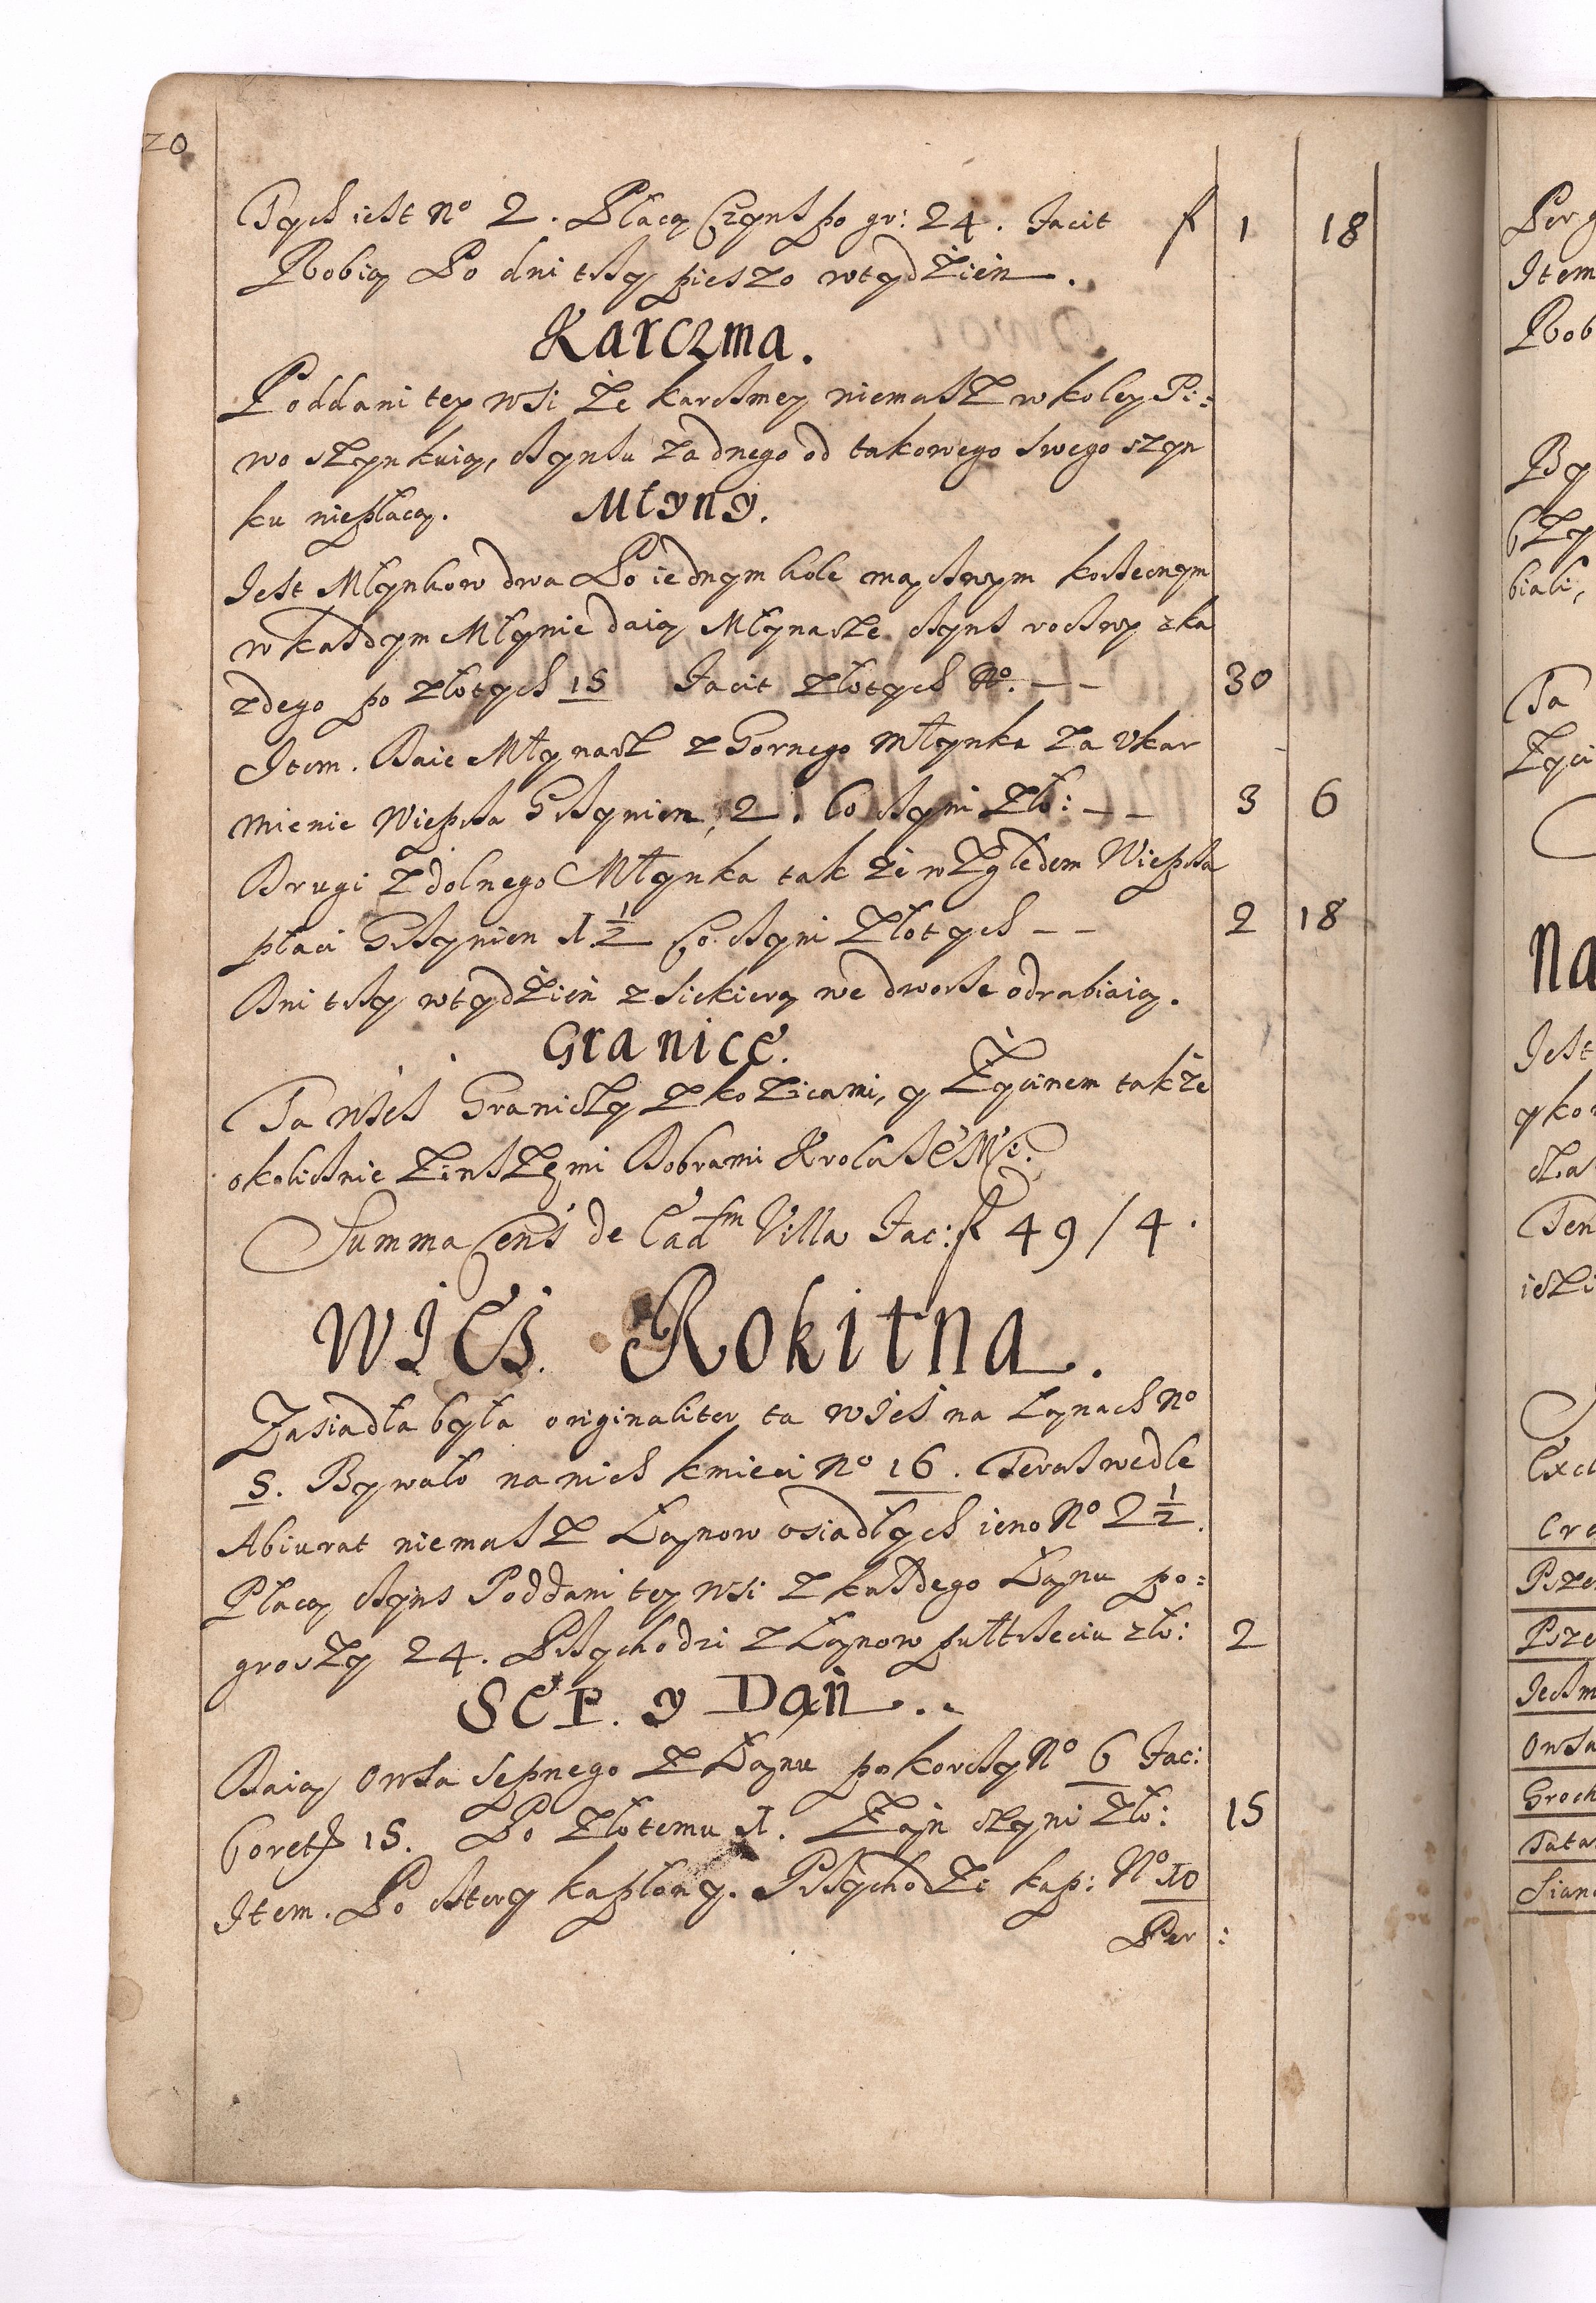 20
Tych iest No 2. Płacą Czynß po gr: 24. Facit f 1 18
Robią Po dni trzy pieszo wtydźień.
Karczma.
Poddani tey wsi że karczmey niemasz w koley Pi:
wo szynkuią, czynsu żadnego od takowego swego szyn
ku niepłacą. Młyny.
Jest Młynkow dwa Po iednym kole
w każdym Młynie daią Młynarze czyns roczny zka
żdego po złotych 15 Facit złotych No. – – 30
Item. Daie Młynarz z Gornego młynka za vkar
mienie Wieprza Grzywien, 2. Co czyni Zło: – – 3 6
Drugi z dolnego Młynka tak że względem Wieprza
płaci Grzywien 1 1/2 Co czyni Złotych – – 2 18
Dni trzy wtydźień z siekierą we dworze odrabiaią.
Granice.
Ta wieś Graniczy z kozicami, y Życinem także
okolicznie z inszemi Dobrami Krolewskiemi
Summa Cens de Eadm Villa Fac: f 49 / 4.
WIEŚ. Rokitna.
Zasiadła była originaliter ta wieś na Łanach No
5. Bywało na nich kmieci No 16. Teraz wedle
Abiurat niemasz Łanow osiadłych ieno No 2 1/2.
Płacą czyns Poddani tey wsi z każdego Łanu po:
groszy 24. Przychodzi z Łanow pułtrzeciu zło: 2
SEP. y Dań..
Daią Owsa sepnego z Łanu po korcy No 6 Fac:
Coret 15. Po złotemu 1. Za czyni Zło: 15
Item. Po cztery kapłony. Przychodzi kap: No 10
Per:
Per
Item
Rob
By
biali,
Ta
Życi
Na
Jest
yko
Ten
Cre
Psze
Psze
Jeczm
Owsa
Groch
Tata
Siana